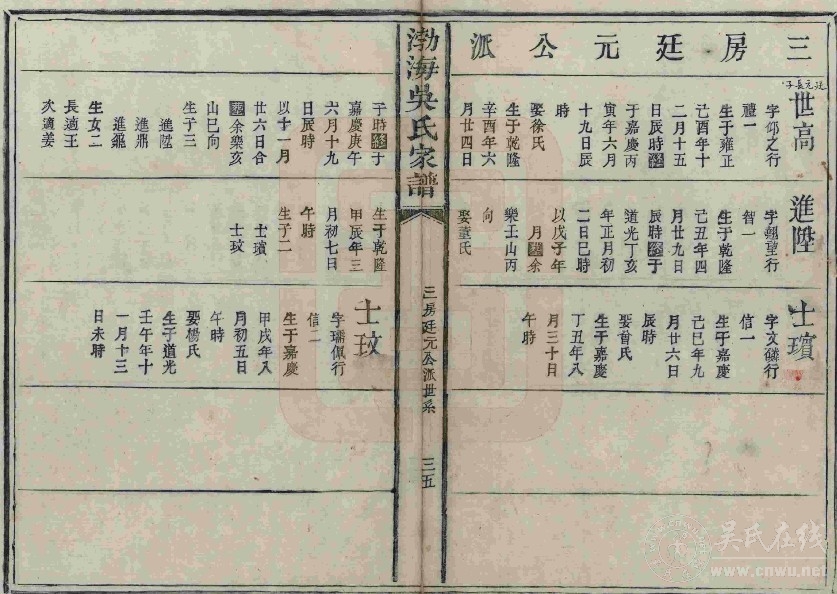 三房廷元公派
廷元長子
世高
字仰之行
禮一
生于雍正
己酉年十
二月十五
日辰時終
于嘉慶丙
寅年六月
十九日辰
時
娶徐氏
生于乾隆
辛酉年六
月廿四日
進陞
字朝望行
智一
生于乾隆
己丑年四
月廿九日
辰時終于
道光丁亥
年正月初
二日巳時
以戊子年
月葬余
樂壬山丙
向
娶董氏
士璸
字文麟行
信一
生于嘉慶
己巳年九
月廿六日
辰時
娶曾氏
生于嘉慶
丁丑年八
月三十日
午時
渤海吳氏家譜
三房廷元公派世系
三五
子時終于
嘉慶庚午
六月十九
日辰時
以十一月
廿六日合
葬余樂亥
山巳向
生子三
進陞
進鼎
生女二
長適王
次適姜
生于乾隆
甲辰年三
月初七日
午時
生子二
士璸
士玟
士玟
字瑞佩行
信二
生于嘉慶
甲戌年八
月初五日
午時
娶楊氏
生于道光
壬午年十
一月十三
日未時
吴氏在线
www.cnwu.net